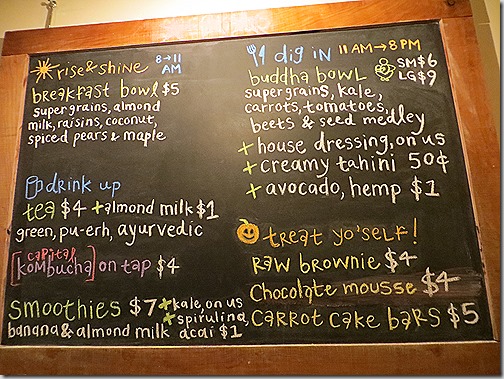 rise & shine 8→11 AM
breakfast bowl $5
supergrains, almond
milk, raisins, coconut,
spiced pears & maple
drink up
tea $4 + almond milk $1
green, pu-erh, ayurvedic
[capital kombucha] on tap $4
smoothies $7 + kale, on us
+ spirulina,
banana & almond milk acai $1
dig in 11 AM→8 PM
buddha bowl SM $6
LG $9
supergrains, kale,
carrots, tomatoes,
beets & seed medley
+ house dressing, on us
+ creamy tahini 50¢
+ avocado, hemp $1
treat yo'self!
raw brownie $4
chocolate mousse $4
carrot cake bars $5